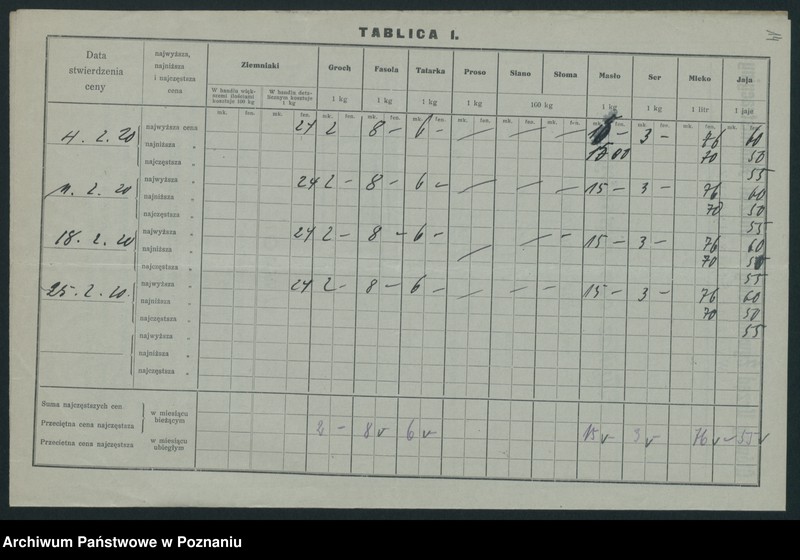 TABLICA I.
Data stwierdzenia ceny | najwyższa, najniższa i najczęstsza cena | Ziemniaki | Groch | Fasola | Tatarka | Proso | Siano | Słoma | Masło | Ser | Mleko | Jaja
W handlu większemi ilościami kosztuje 100 kg | W handlu detalicznym kosztuje 1 kg | 1 kg | 1 kg | 1 kg | 1 kg | 100 kg | 1 kg | 1 kg | 1 litr | 1 jaje
mk. fen. mk. fen. mk. fen. mk. fen. mk. fen. mk. fen. mk. fen. mk. fen. mk. fen. mk. fen. mk. fen. mk. fen.
4. 2. 20 najwyższa cena 24 2 8 – 6 – — — — 15 – 3 – 76 60
najniższa „ 15 00 70 50
najczęstsza „ 55
11. 2. 20 najwyższa „ 24 2 – 8 – 6 – — — — 15 – 3 – 76 60
najniższa „ 70 50
najczęstsza „ 55
18. 2. 20 najwyższa „ 24 2 – 8 – 6 – — — — 15 – 3 – 76 60
najniższa „ 70 50
najczęstsza „ 55
25. 2. 20. najwyższa „ 24 2 – 8 – 6 – — — — 15 – 3 – 76 60
najniższa „ 70 50
najczęstsza „ 55
najwyższa „
najniższa „
najczęstsza „
Suma najczęstszych cen.
Przeciętna cena najczęstsza w miesiącu bieżącym 2 – 8 6 15 3 76 55
Przeciętna cena najczęstsza w miesiącu ubiegłym
Archiwum Państwowe w Poznaniu